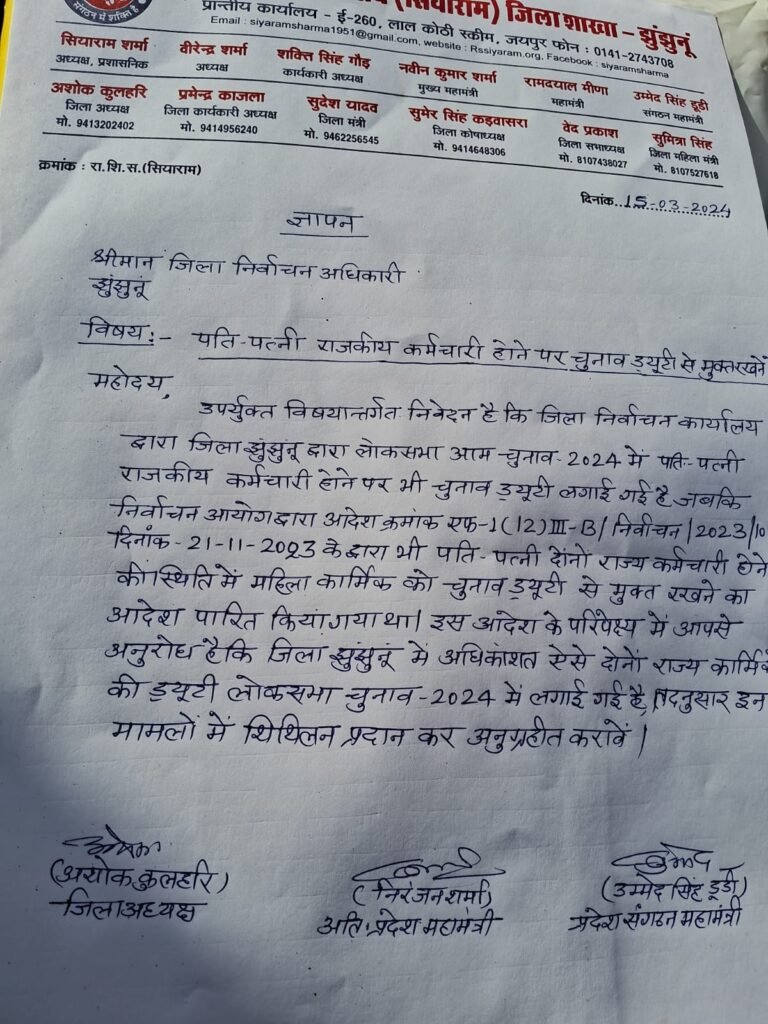 संगठन में शक्ति है
(सियाराम) जिला शाखा – झुंझुनूं
प्रान्तीय कार्यालय - ई-260, लाल कोठी स्कीम, जयपुर फोन : 0141-2743708
Email : siyaramsharma1951@gmail.com, website : Rssiyaram.org, Facebook : siyaramsharma
सियाराम शर्मा वीरेन्द्र शर्मा शक्ति सिंह गौड़ नवीन कुमार शर्मा रामदयाल मीणा उम्मेद सिंह डूडी
अध्यक्ष, प्रशासनिक अध्यक्ष कार्यकारी अध्यक्ष मुख्य महामंत्री महामंत्री संगठन महामंत्री
अशोक कुलहरि प्रमेन्द्र काजला सुदेश यादव सुमेर सिंह कड़वासरा वेद प्रकाश सुमित्रा सिंह
जिला अध्यक्ष जिला कार्यकारी अध्यक्ष जिला मंत्री जिला कोषाध्यक्ष जिला सभाध्यक्ष जिला महिला मंत्री
मो. 9413202402 मो. 9414956240 मो. 9462256545 मो. 9414648306 मो. 8107438027 मो. 8107527618
क्रमांक : रा.शि.स.(सियाराम)
दिनांक..15-03-2024
ज्ञापन
श्रीमान जिला निर्वाचन अधिकारी
झुंझुनूं
विषय:- पति-पत्नी राजकीय कर्मचारी होने पर चुनाव ड्यूटी से मुक्त रखने
महोदय,
उपर्युक्त विषयान्तर्गत निवेदन है कि जिला निर्वाचन कार्यालय
द्वारा जिला झुंझुनू द्वारा लोकसभा आम चुनाव-2024 में पति-पत्नी
राजकीय कर्मचारी होने पर भी चुनाव ड्यूटी लगाई गई है जबकि
निर्वाचन आयोग द्वारा आदेश क्रमांक एफ-1(12)III-B/निर्वाचन/2023/10
दिनांक-21-11-2023 के द्वारा भी पति-पत्नी दोनों राज्य कर्मचारी होने
की स्थिति में महिला कार्मिक को चुनाव ड्यूटी से मुक्त रखने का
आदेश पारित किया गया था। इस आदेश के परिपेक्ष्य में आपसे
अनुरोध है कि जिला झुंझुनूं में अधिकांशत ऐसे दोनों राज्य कार्मिक
की ड्यूटी लोकसभा चुनाव-2024 में लगाई गई है, तदनुसार इन
मामलों में शिथिलन प्रदान कर अनुग्रहीत करावें।
(अशोक कुलहरि) (निरंजन शर्मा) (उम्मेद सिंह डूडी)
जिलाअध्यक्ष अति. प्रदेश महामंत्री प्रदेश संगठन महामंत्री